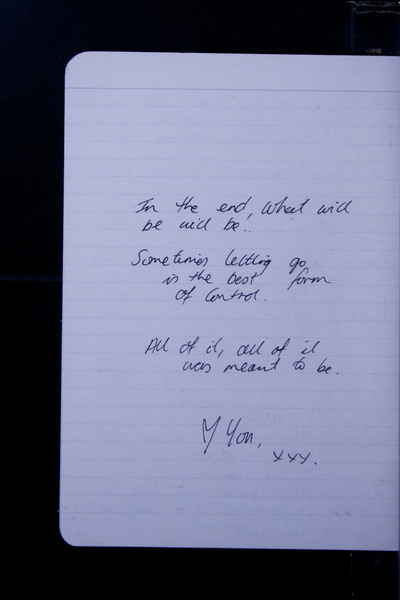 In the end, what will
be will be..
Sometimes letting go
is the best form
of control.
All of it, all of it
was meant to be.
You,
xxx.